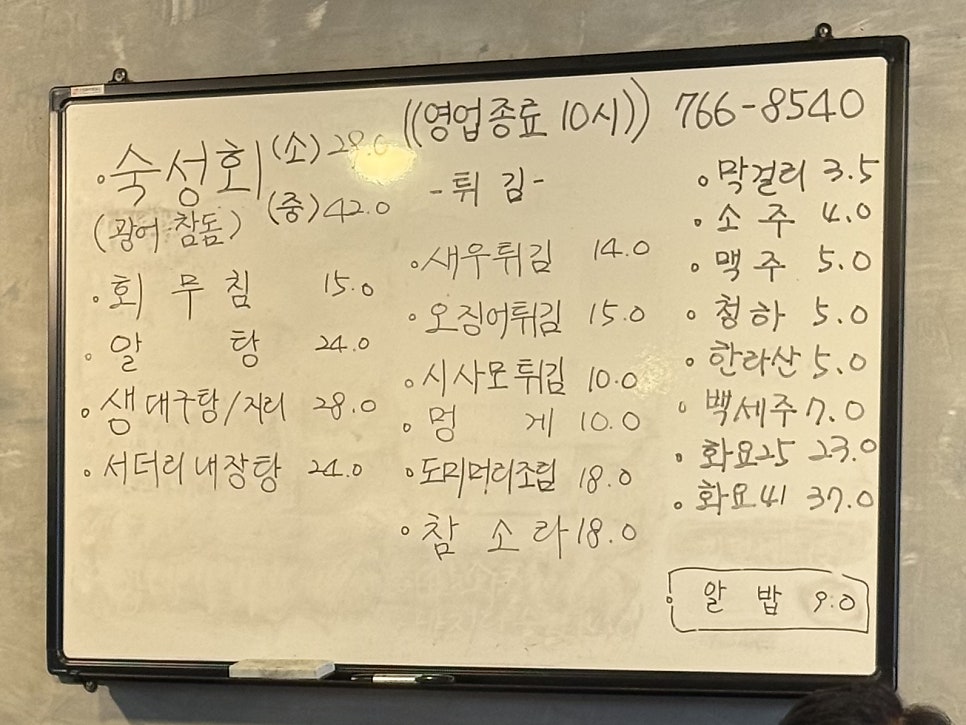 ((영업종료 10시)) 766-8540
·숙성회 (소) 28.0
(광어·참돔) (중) 42.0
·회 무 침 15.0
·알 탕 24.0
·생대구탕/지리 28.0
·서더리내장탕 24.0
-튀 김-
·새우튀김 14.0
·오징어튀김 15.0
·시사모튀김 10.0
·멍 게 10.0
·도미머리조림 18.0
·참 소 라 18.0
·막걸리 3.5
·소 주 4.0
·맥 주 5.0
·청 하 5.0
·한라산 5.0
·백세주 7.0
·화요25 23.0
·화요41 37.0
·알 밥 9.0